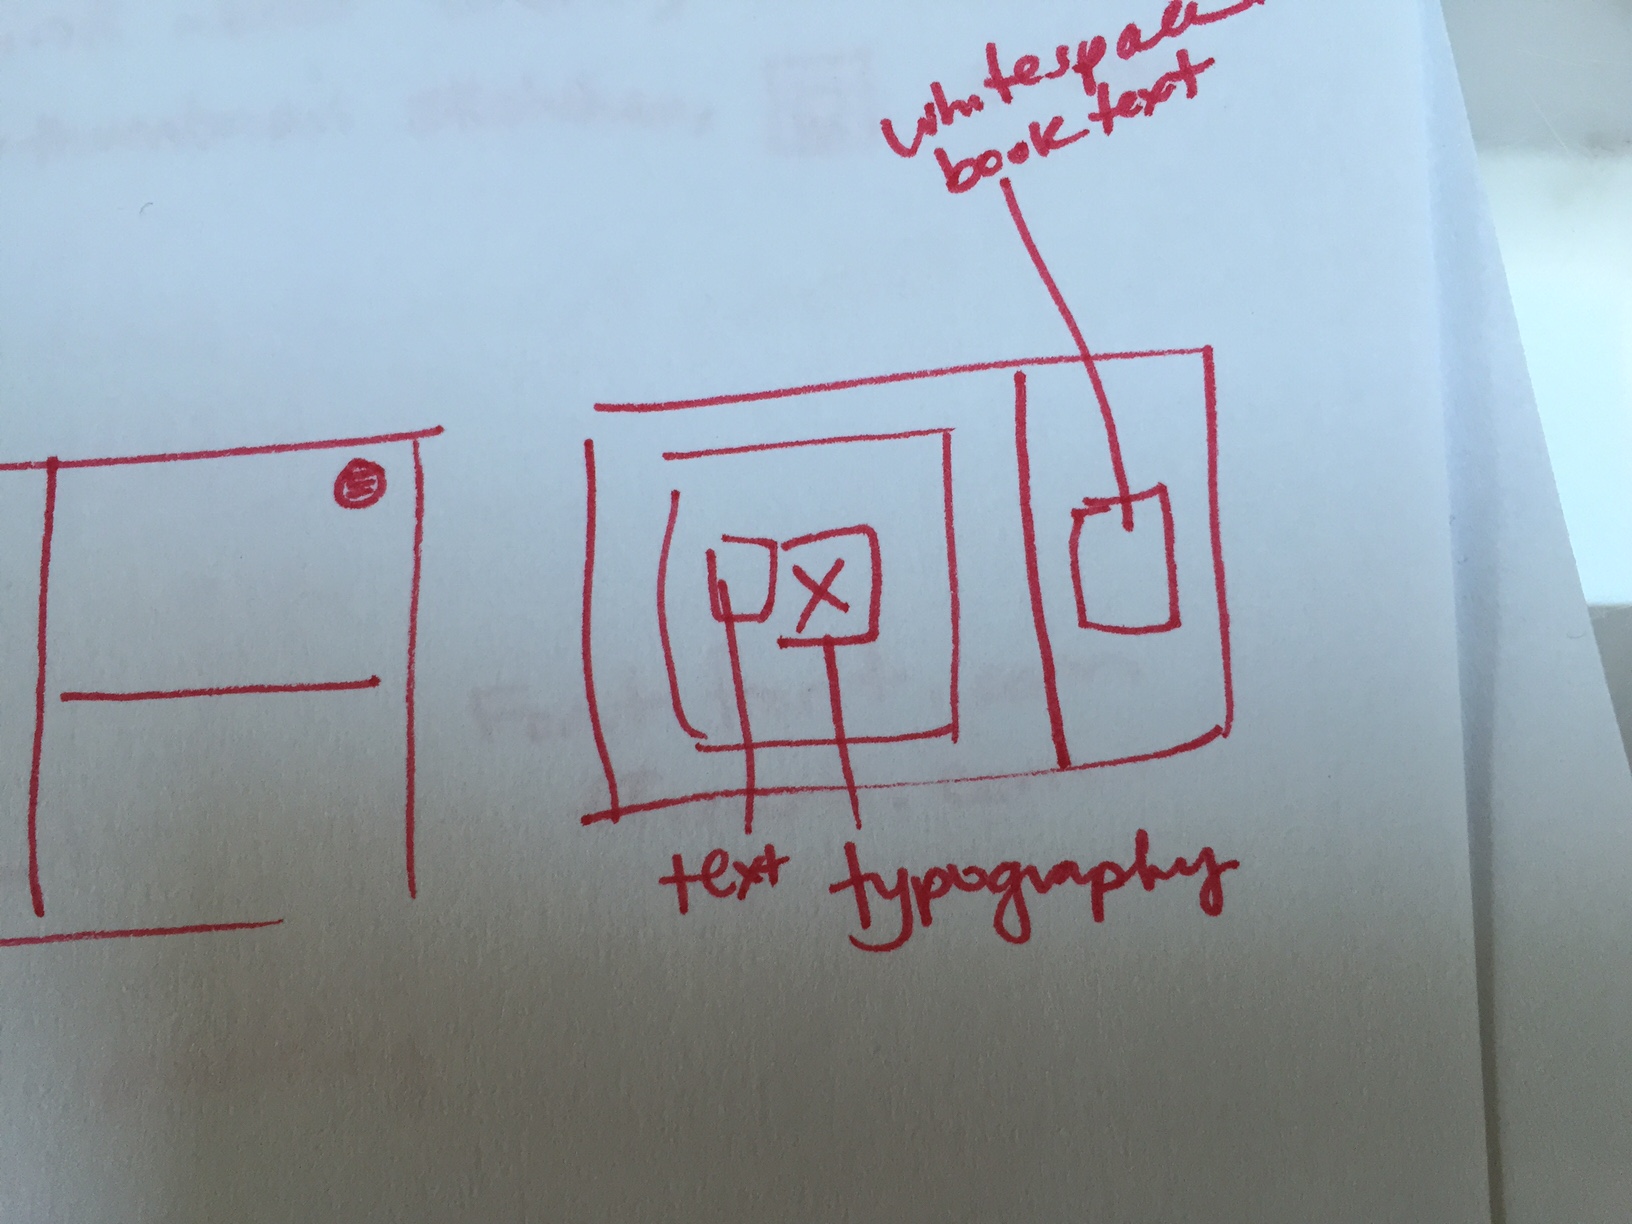 whitespace
book text
text typography